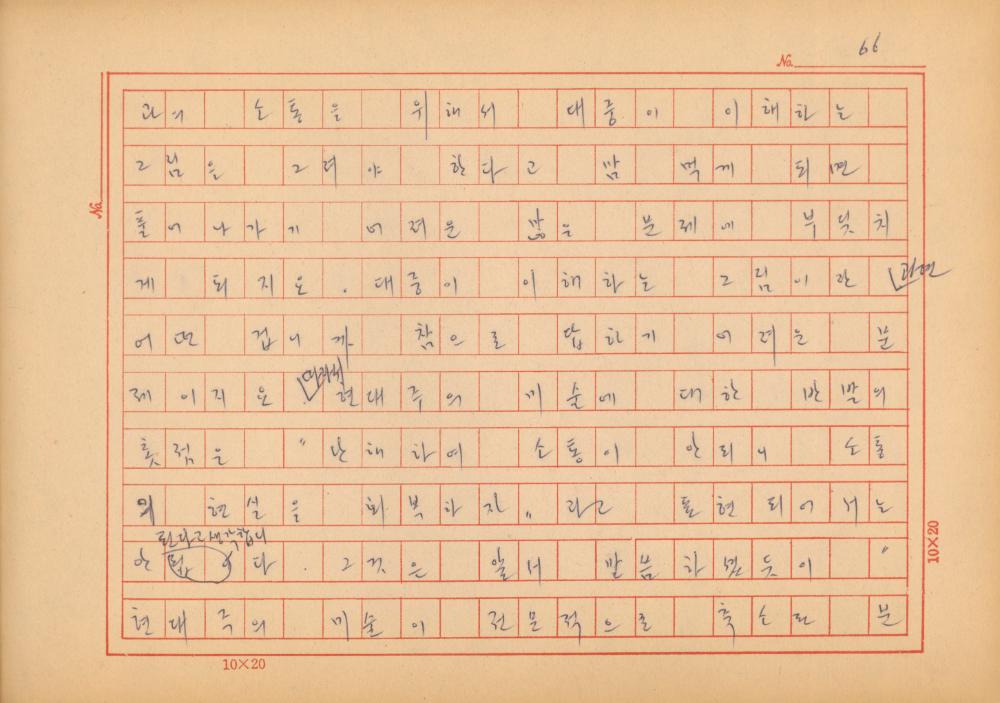 No. 66
과의 소통을 위해서 대중이 이해하는
그림은 그려야 한다고 맘 먹게 되면
풀어나가기 어려운 많은 문제에 부딪치
게 되지요. 대중이 이해하는 그림이란 과연
어떤 겁니까 참으로 답하기 어려운 문
제이지요. 따라서 현대주의 미술에 대한 반발의
촛점은 "난해하여 소통이 안되니 소통
의 현실을 회복하자" 라고 표현되어서는
된다고 생각합니
안 됩니다. 그것은 앞서 말씀하셨듯이 "
현대주의 미술이 전문적으로 축소된 분
No.
10×20
10×20